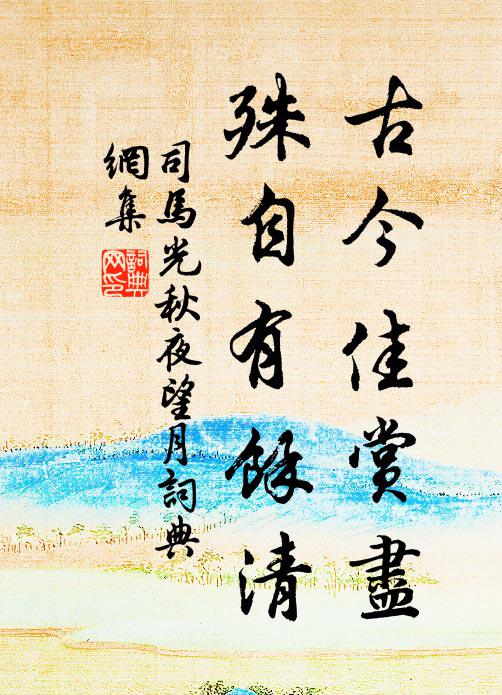 古今佳賞盡
殊自有餘清
司馬光秋夜望月詞典
網集
詞典
网印